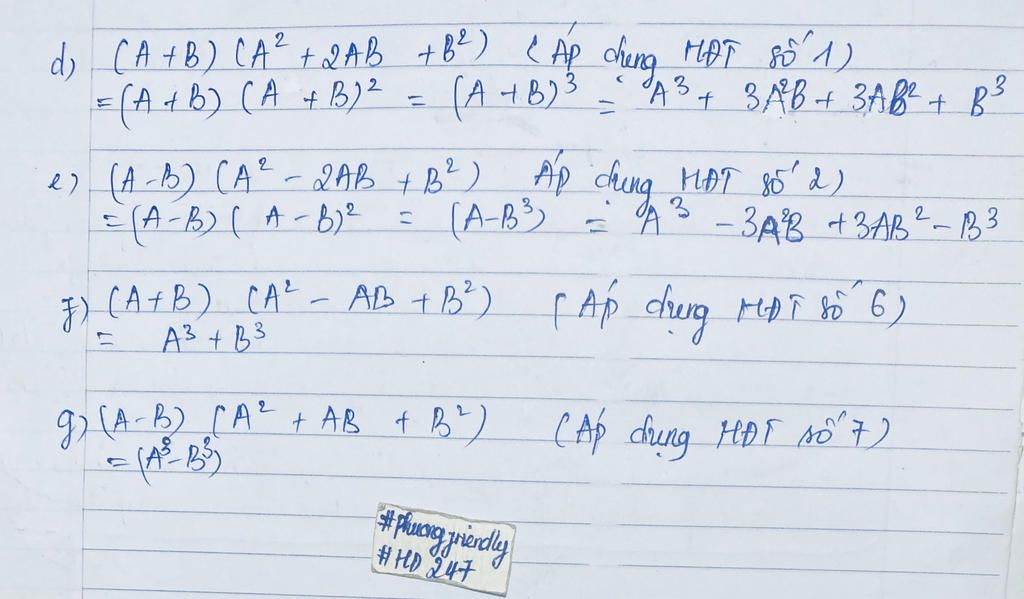 d) (A + B) (A² + 2AB + B²) (Áp dụng HĐT số 1)
= (A + B) (A + B)² = (A + B)³ = A³ + 3A²B + 3AB² + B³
e) (A - B) (A² - 2AB + B²) Áp dụng HĐT số 2)
= (A - B) (A - B)² = (A - B³) = A³ - 3A²B + 3AB² - B³
f) (A + B) (A² - AB + B²) (Áp dụng HĐT số 6)
= A³ + B³
g) (A - B) (A² + AB + B²) (Áp dụng HĐT số 7)
= (A³ - B³)
#phuongfriendly
#HD 247